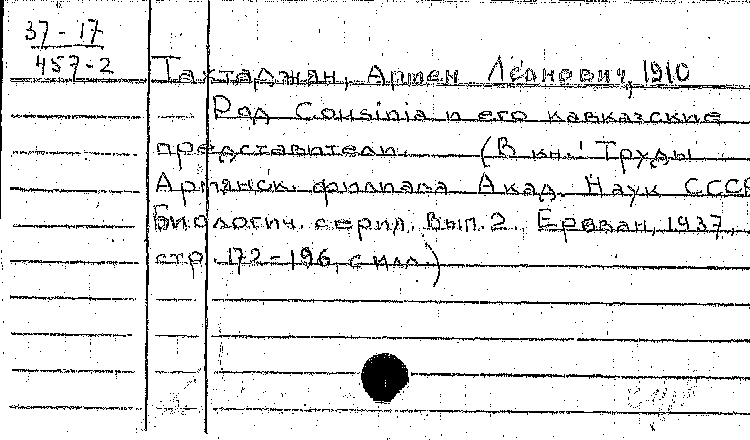 37-17
457-2
Тахтаджян, Армен Леонович, 1910
Род Cousinia и его кавказские
представители. (В кн.: Труды
Армянск. филиала Акад. Наук СССР
Биологич. серия, Вып. 2., Ереван, 1937,
стр. 172-196, с илл.)